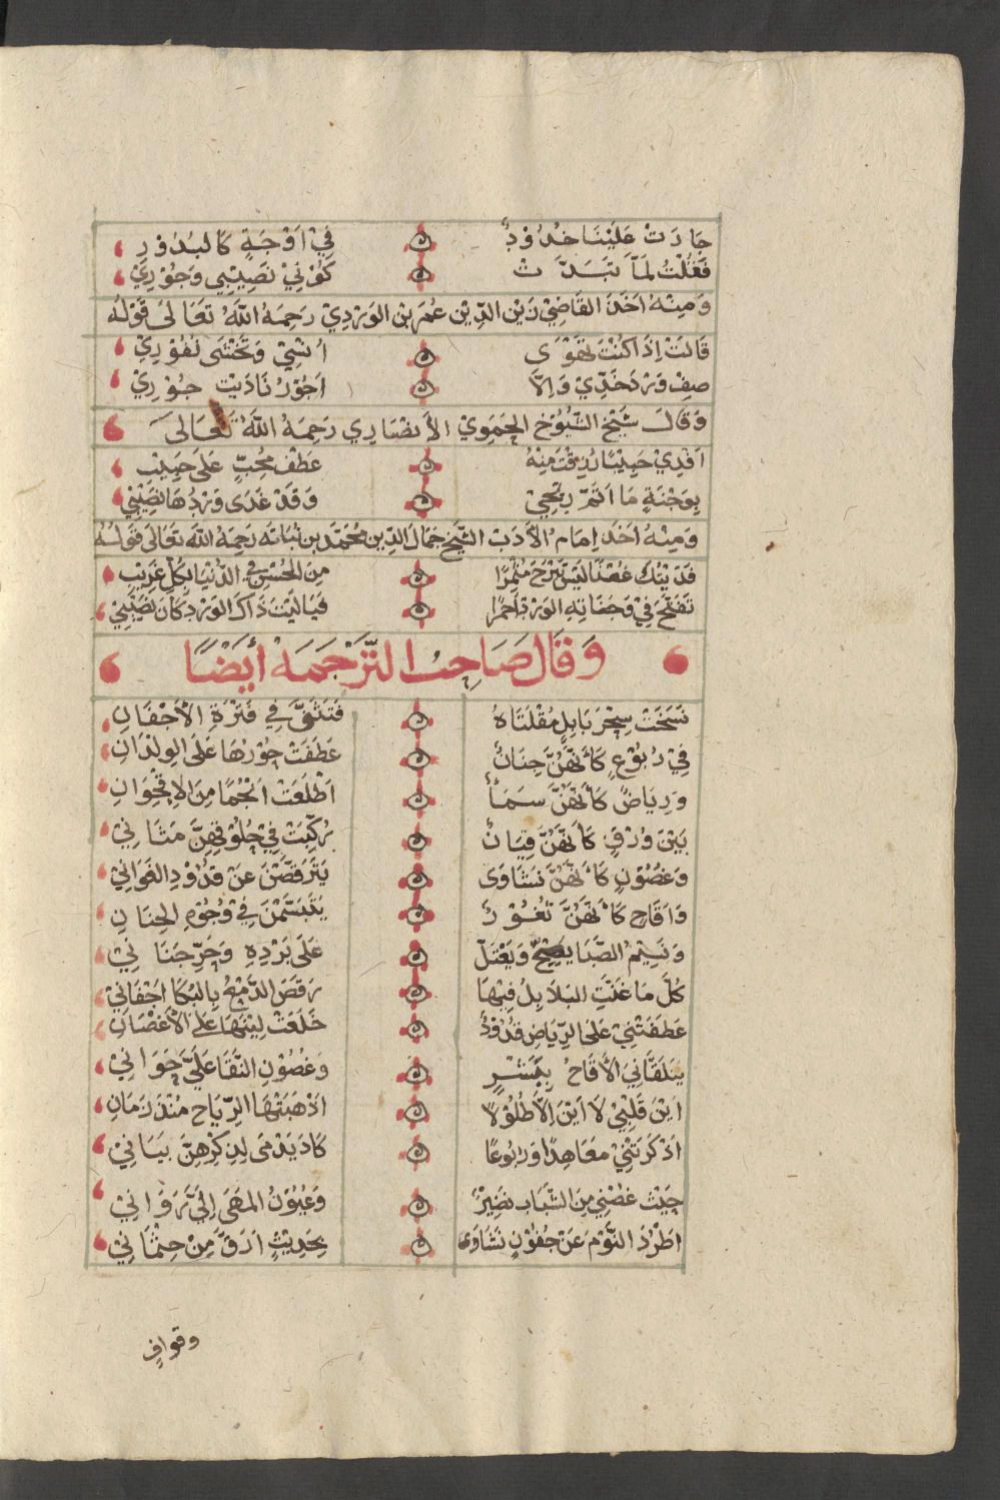 جَارَتْ عَلَيْنَا خُدُوْدٌ فِيْ اَوْجَةٍ كَالبُدُوْرِ
فَقُلْتُ لَمَّا تَبَدَّتْ كُوْنِيْ نَصِيْبِي وَجُوْرِيْ
وَمِنْهُ اَخَذَ القَاضِيْ زَيْن الدِّيْن عُمَر بْن الوَرْدِيْ رَحِمَهُ اللهُ تَعَالَى قَوْلُهُ
قَالَتْ اِذَا كُنْتَ تَهْوَى اُنْسِيْ وَتَخْشَى نُفُوْرِيْ
صِفْ وَرْدَ خَدِّي وَاِلَّا اَجُوْرُ نَادَيْت جُوْرِيْ
وَقَالَ شَيْخ الشُّيُوْخ الحَمَوِيْ الاَنْصَارِي رَحِمَهُ اللهُ تَعَالَى
اَفْدِيْ حَبِيْبًا رُزِقْتُ مِنْهُ عَطْفَ مُحِبٍّ عَلَى حَبِيْبِ
بِوَجْنَةٍ مَا اَتَمَّ رِبْحِيْ وَقَدْ غَدَى وَرْدُهَا نَصِيْبِي
وَمِنْهُ اَخَذَ اِمَامُ الأَدَبْ الشَّيْخ جَمَالُ الدِّيْن مُحَمَّد بن نُبَاتَه رَحِمَهُ اللهُ تَعَالَى قَوْلُهُ
فَدَيْتُكَ غُصْنًا لَيْسَ يَبْرَحُ مُثْمِرًا مِنَ الحُسْنِ فِي الدُّنْيَا بِكُلِّ غَرِيْبِ
تَفَتَّحَ فِيْ وَجَنَاتِهِ الوَرْدُ اَحْمَرًا فَيَا لَيْتَ ذَاكَ الوَرْدَ كَانَ نَصِيْبِيْ
وَقَالَ صَاحِبُ التَّرْجَمَهْ أَيْضًا
نَسَخَتْ سِحْرَ بَابِلٍ مُقْلَتَاهُ فَتَثَنَّى فِي فَتْرَةِ الأَجْفَانِ
فِيْ رُبُوْعٍ كَأَنَّهُنَّ جِنَانٌ عَطَفَتْ حُوْرُهَا عَلَى الوِلْدَانِ
وَرِيَاضٌ كَأَنَّهُنَّ سَمَاءٌ اَطْلَعَتْ اَنْجُمًا مِنَ الاِقْحُوَانِ
بَيْنَ وُرْقٍ كَأَنَّهُنَّ قِيَانٌ رُكِّبَتْ فِيْ حُلُوْقِهِنَّ مَثَانِيْ
وَغُصُوْنٍ كَأَنَّهُنَّ نَشَاوَى يَتَرَقَّصْنَ عَنْ قُدُوْدِ الغَوَانِيْ
وَاَقَاحٍ كَأَنَّهُنَّ ثُغُوْرٌ يَتَبَسَّمْنَ فِيْ وُجُوْهِ الجِنَانِ
وَنَسِيْمُ الصَّبَا يَصِحُّ وَيَعْتَلّ عَلَى بَرْدِهِ وَحَرِّ جَنَانِيْ
كُلَّ مَا غَنَّتِ البَلَابِلُ فِيْهَا رَقَصَ الدَّمْعُ بِالبُكَا اَجْفَانِيْ
عَطَفَتْنِيْ عَلَى الرِّيَاضِ قُدُوْدٌ خَلَعَتْ لِيْنَهَا عَلَى الأَغْصَانِ
يَتَلَقَّانِيَ الأَقَاحُ بِبِشْرٍ وَغُصُوْنِ النَّقَا عَلَيَّ حَوَانِيْ
اَيْنَ قَلْبِيْ لَا اَيْنَ اِلَّا طُلُوْلًا اَذْهَبَتْهَا الرِّيَاح مُنْذُ زَمَانِ
اَذْكَرَتْنِيْ مَعَاهِدًا وَرُبُوْعًا كَادَ يَدْمَى لِذِكْرِهِنَّ بَيَانِيْ
حَيْثُ غُصْنِي مِنَ الشَّبَاب نَضِيْرٌ وَعُيُوْنُ المَهَى اِلَيَّ رَوَانِيْ
اَطْرُدُ النَّوْمَ عَنْ جُفُوْنٍ نَشَاوَى بِحَدِيْثٍ اَرَقَّ مِنْ جِثْمَانِيْ
وقوافٍ